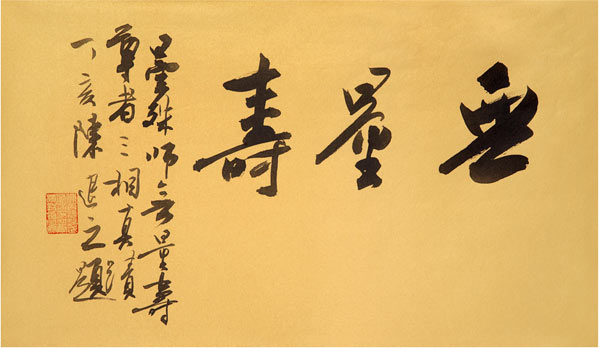 無量壽
曼殊師無量壽
尊者三相真蹟
丁亥陳退之題